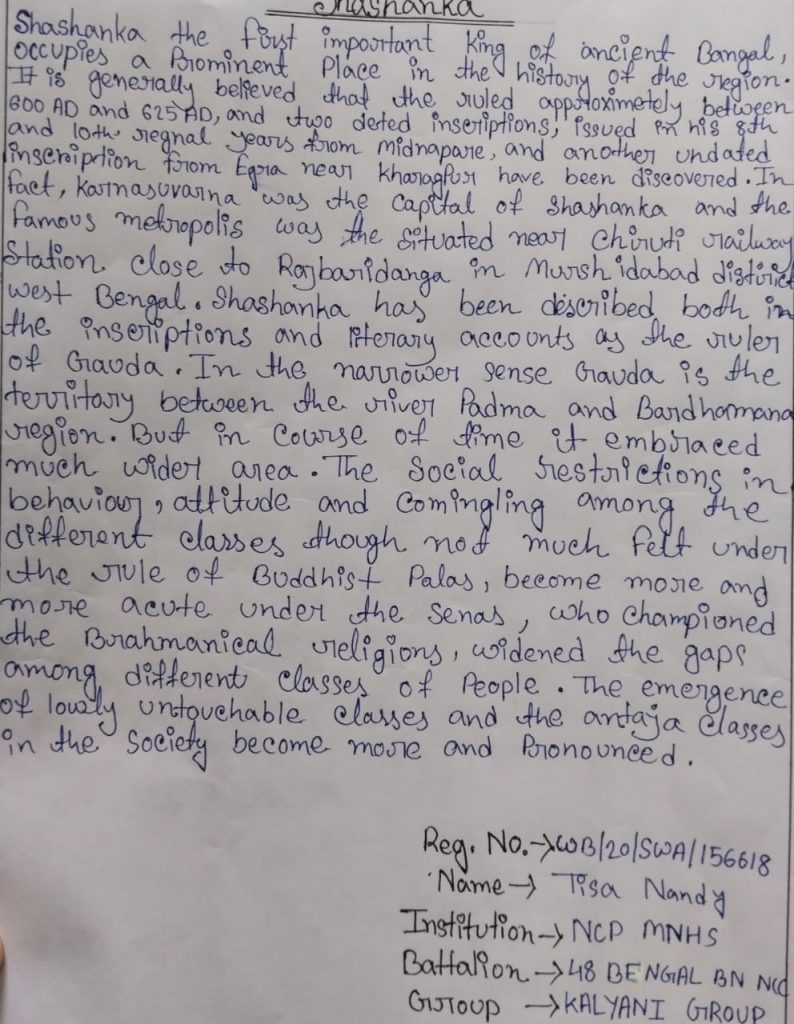 Shashanka
Shashanka the first important King of ancient Bangal,
occupies a Prominent Place in the history of the region.
It is generally believed that the ruled approximetely between
600 AD and 625 AD, and two deted inscriptions, issued in his 8th
and 10th regnal years from Midnapare, and another undated
inscription from Egra near Kharagpur have been discovered. In
fact, Karnasuvarna was the Capital of Shashanka and the
famous metropolis was the situated near Chiruti railway
Station close to Rajbaridanga in Murshidabad district
west Bengal. Shashanka has been described both in
the inscriptions and literary accounts as the ruler
of Gauda. In the narrower sense Gauda is the
territary between the river Padma and Bardhamana
region. But in Course of time it embraced
much wider area. The Social restrictions in
behaviour, attitude and Comingling among the
different classes though not much felt under
the rule of Buddhist Palas, become more and
more acute under the Senas, who championed
the Brahmanical religions, widened the gaps
among different Classes of People. The emergence
of lowly untouchable Classes and the antaja Classes
in the Society become more and Pronounced.
Reg. No.→WB/20/SWA/156618
Name→ Tisa Nandy
Institution→ NCP MNHS
Battalion→48 BENGAL BN NCC
Group →KALYANI GROUP